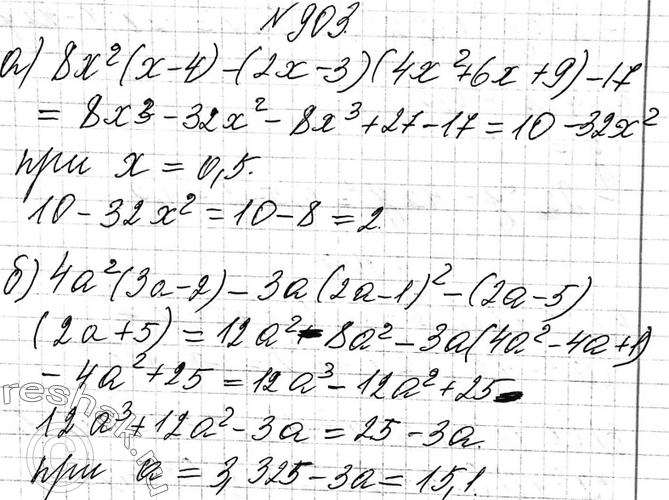 №903.
а) 8x²(x-4)-(2x-3)(4x²+6x+9)-17
= 8x3-32x²-8x³+27-17=10-32x²
при x=0,5.
10-32x²=10-8=2.
б) 4a²(3a-2)-3a(2a-1)²-(2a-5)
(2a+5)=12a²-8a²-3a(4a²-4a+1)
-4a²+25=12a³-12a²+25-
12a³+12a²-3a=25-3a.
при a=3,325-3a=15,1.
reshak.ru